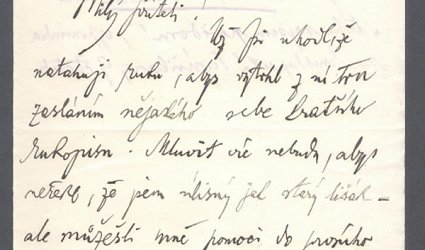 Milý příteli
Ty jsi uhodl, že
natahuji ruku, abys vytrhl z ní trn
zasláním nějakého sebe kratšího
rukopisu. Mluvit víc nebudu, abys
neřekl, že jsem úlisný jak starý lišák –
ale můžeš-li mně pomoci do prvního